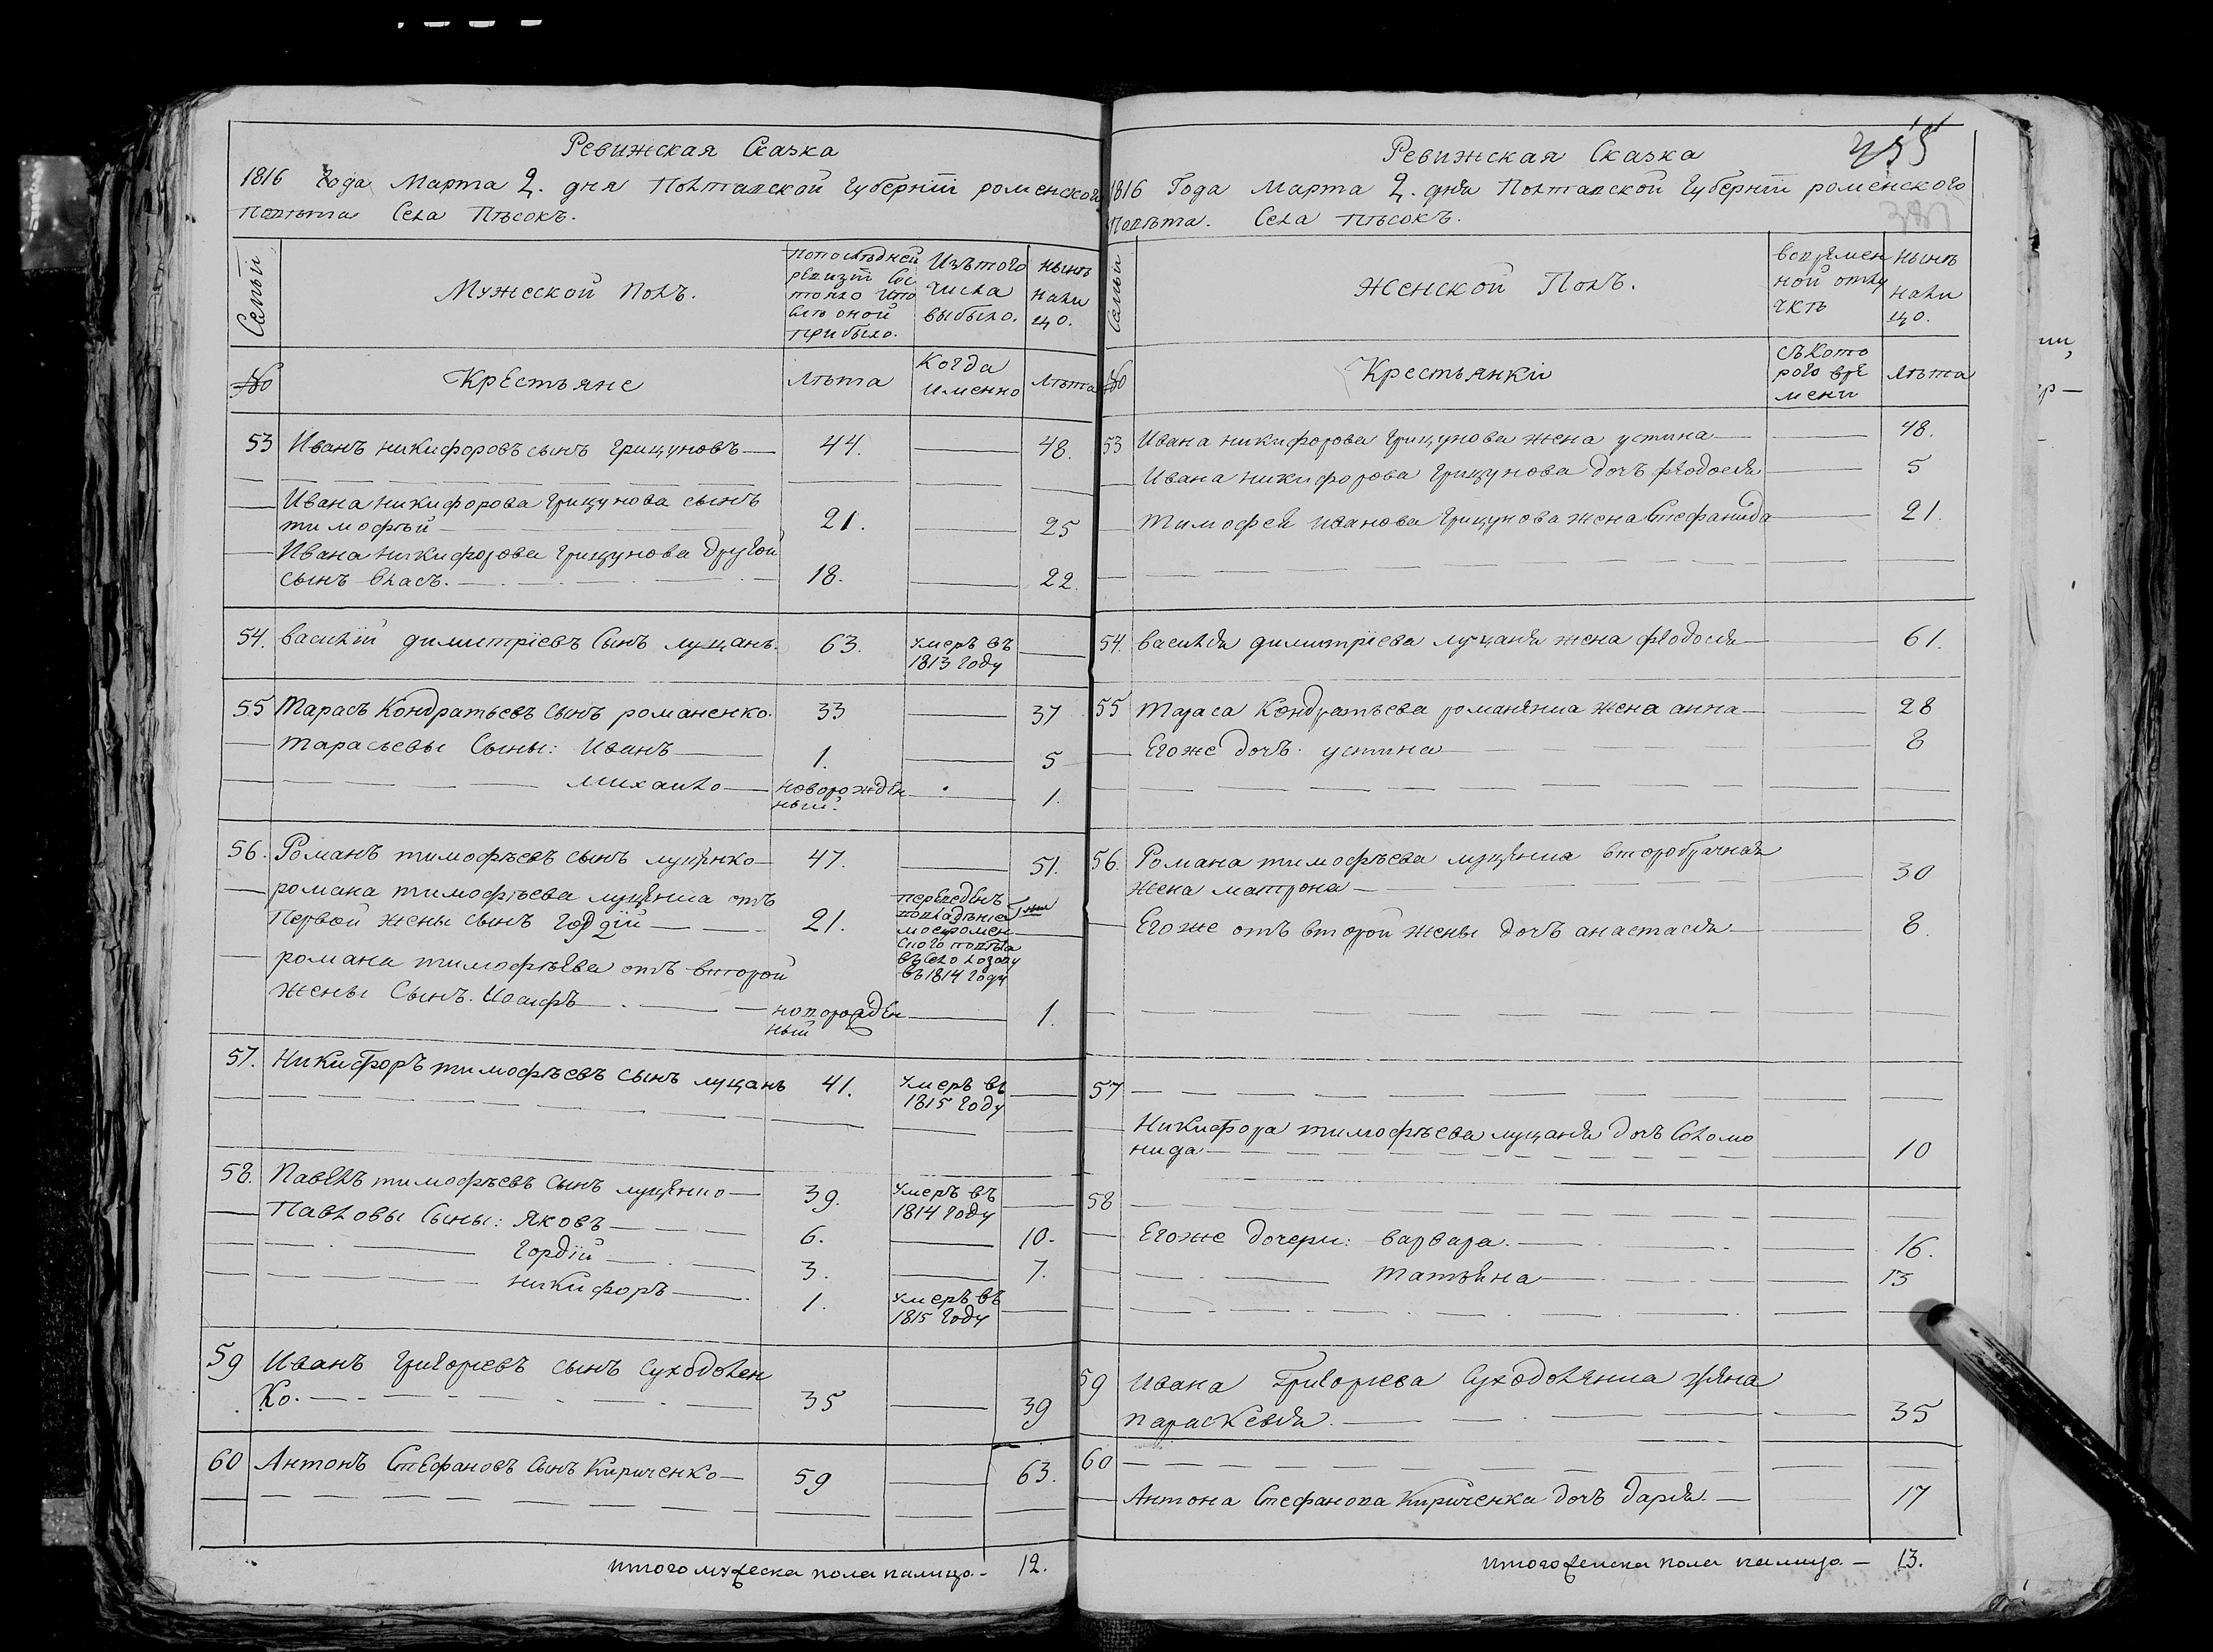 Ревижская Сказка
1816 Года Марта 2. дня Полтавской Губернїи роменского
Повѣта Села Пѣсокъ.
Семьи
Мужеской Полъ.
попослѣдней
ревизїи сос
тояло ипо
слѣ оной
прибыло.
Изътого
числа
выбыло.
нынѣ
нали
цо.
№
Крестьяне
лѣта
Когда
именно
лѣта
53 Иванъ никифоровъ сынъ грицуновъ 44. 48.
Ивана никифорова грицунова сынъ
тимофѣй 21. 25
Ивана никифорова грицунова другой
сынъ власъ. 18. 22.
54. василїй димитрїевъ Сынъ лущанъ. 63. умеръ въ
1813 году
55 Тарасъ Кондратьевъ сынъ романенко. 33 37
Тарасьевы Сыны: Иванъ 1. 5
михайло новорожден
ный. 1.
56. Романъ тимофѣевъ сынъ лущенко 47. 51.
романа тимофѣева лущенка отъ
Первой жены сынъ гордїй 21.
переведенъ
ромен
ского повѣта
въ село
въ 1814 году
романа тимофѣева отъ второй
жены Сынъ. Иосифъ новорожден
ный 1.
57. Никифоръ тимофѣевъ сынъ лущанъ 41. умеръ въ
1815 году
58. Павелъ тимофѣевъ сынъ лущенко 39. умеръ въ
1814 году
Павловы Сыны: Яковъ 6. 10.
Гордїй 3. 7.
никифоръ 1. умеръ въ
1815 году
59 Иванъ григорьевъ сынъ Суходолен
ко. 35 39
60 Антонъ Стефановъ сынъ Кириченко 59 63.
итого мужеска пола налицо. 12.
Ревижская Сказка
1816 Года Марта 2. дня Полтавской Губернїи роменского
Повѣта. Села пѣсокъ.
Семьи
Женской Полъ.
вовремен
ной отлу
чкѣ
нынѣ
нали
цо.
№
Крестьянки
съкото
рого вре
мени
лѣта
53 Ивана никифорова грицунова жена устина 48.
Ивана никифорова грицунова дочъ феодосия 5
Тимофея иванова грицунова жена Стефанида 21.
54. василия димитрїева лущаня жена феодосия 61.
55 Тараса Кондратьева романенка жена анна 28
Егоже дочъ устина 8
56. Романа тимофѣева лущенка второбрачная
жена матрона 30
Егоже отъ второй жены дочъ анастасия 8.
57
Никифора тимофѣева лущаня дочъ Соломо
нида 10
58
Егоже дочери: варвара. 16.
татьяна 13
59 Ивана Григорьева Суходоленка жена
параскевия. 35
60
Антона Стефанова Кириченка дочъ дария. 17
итого женска пола налицо 13.